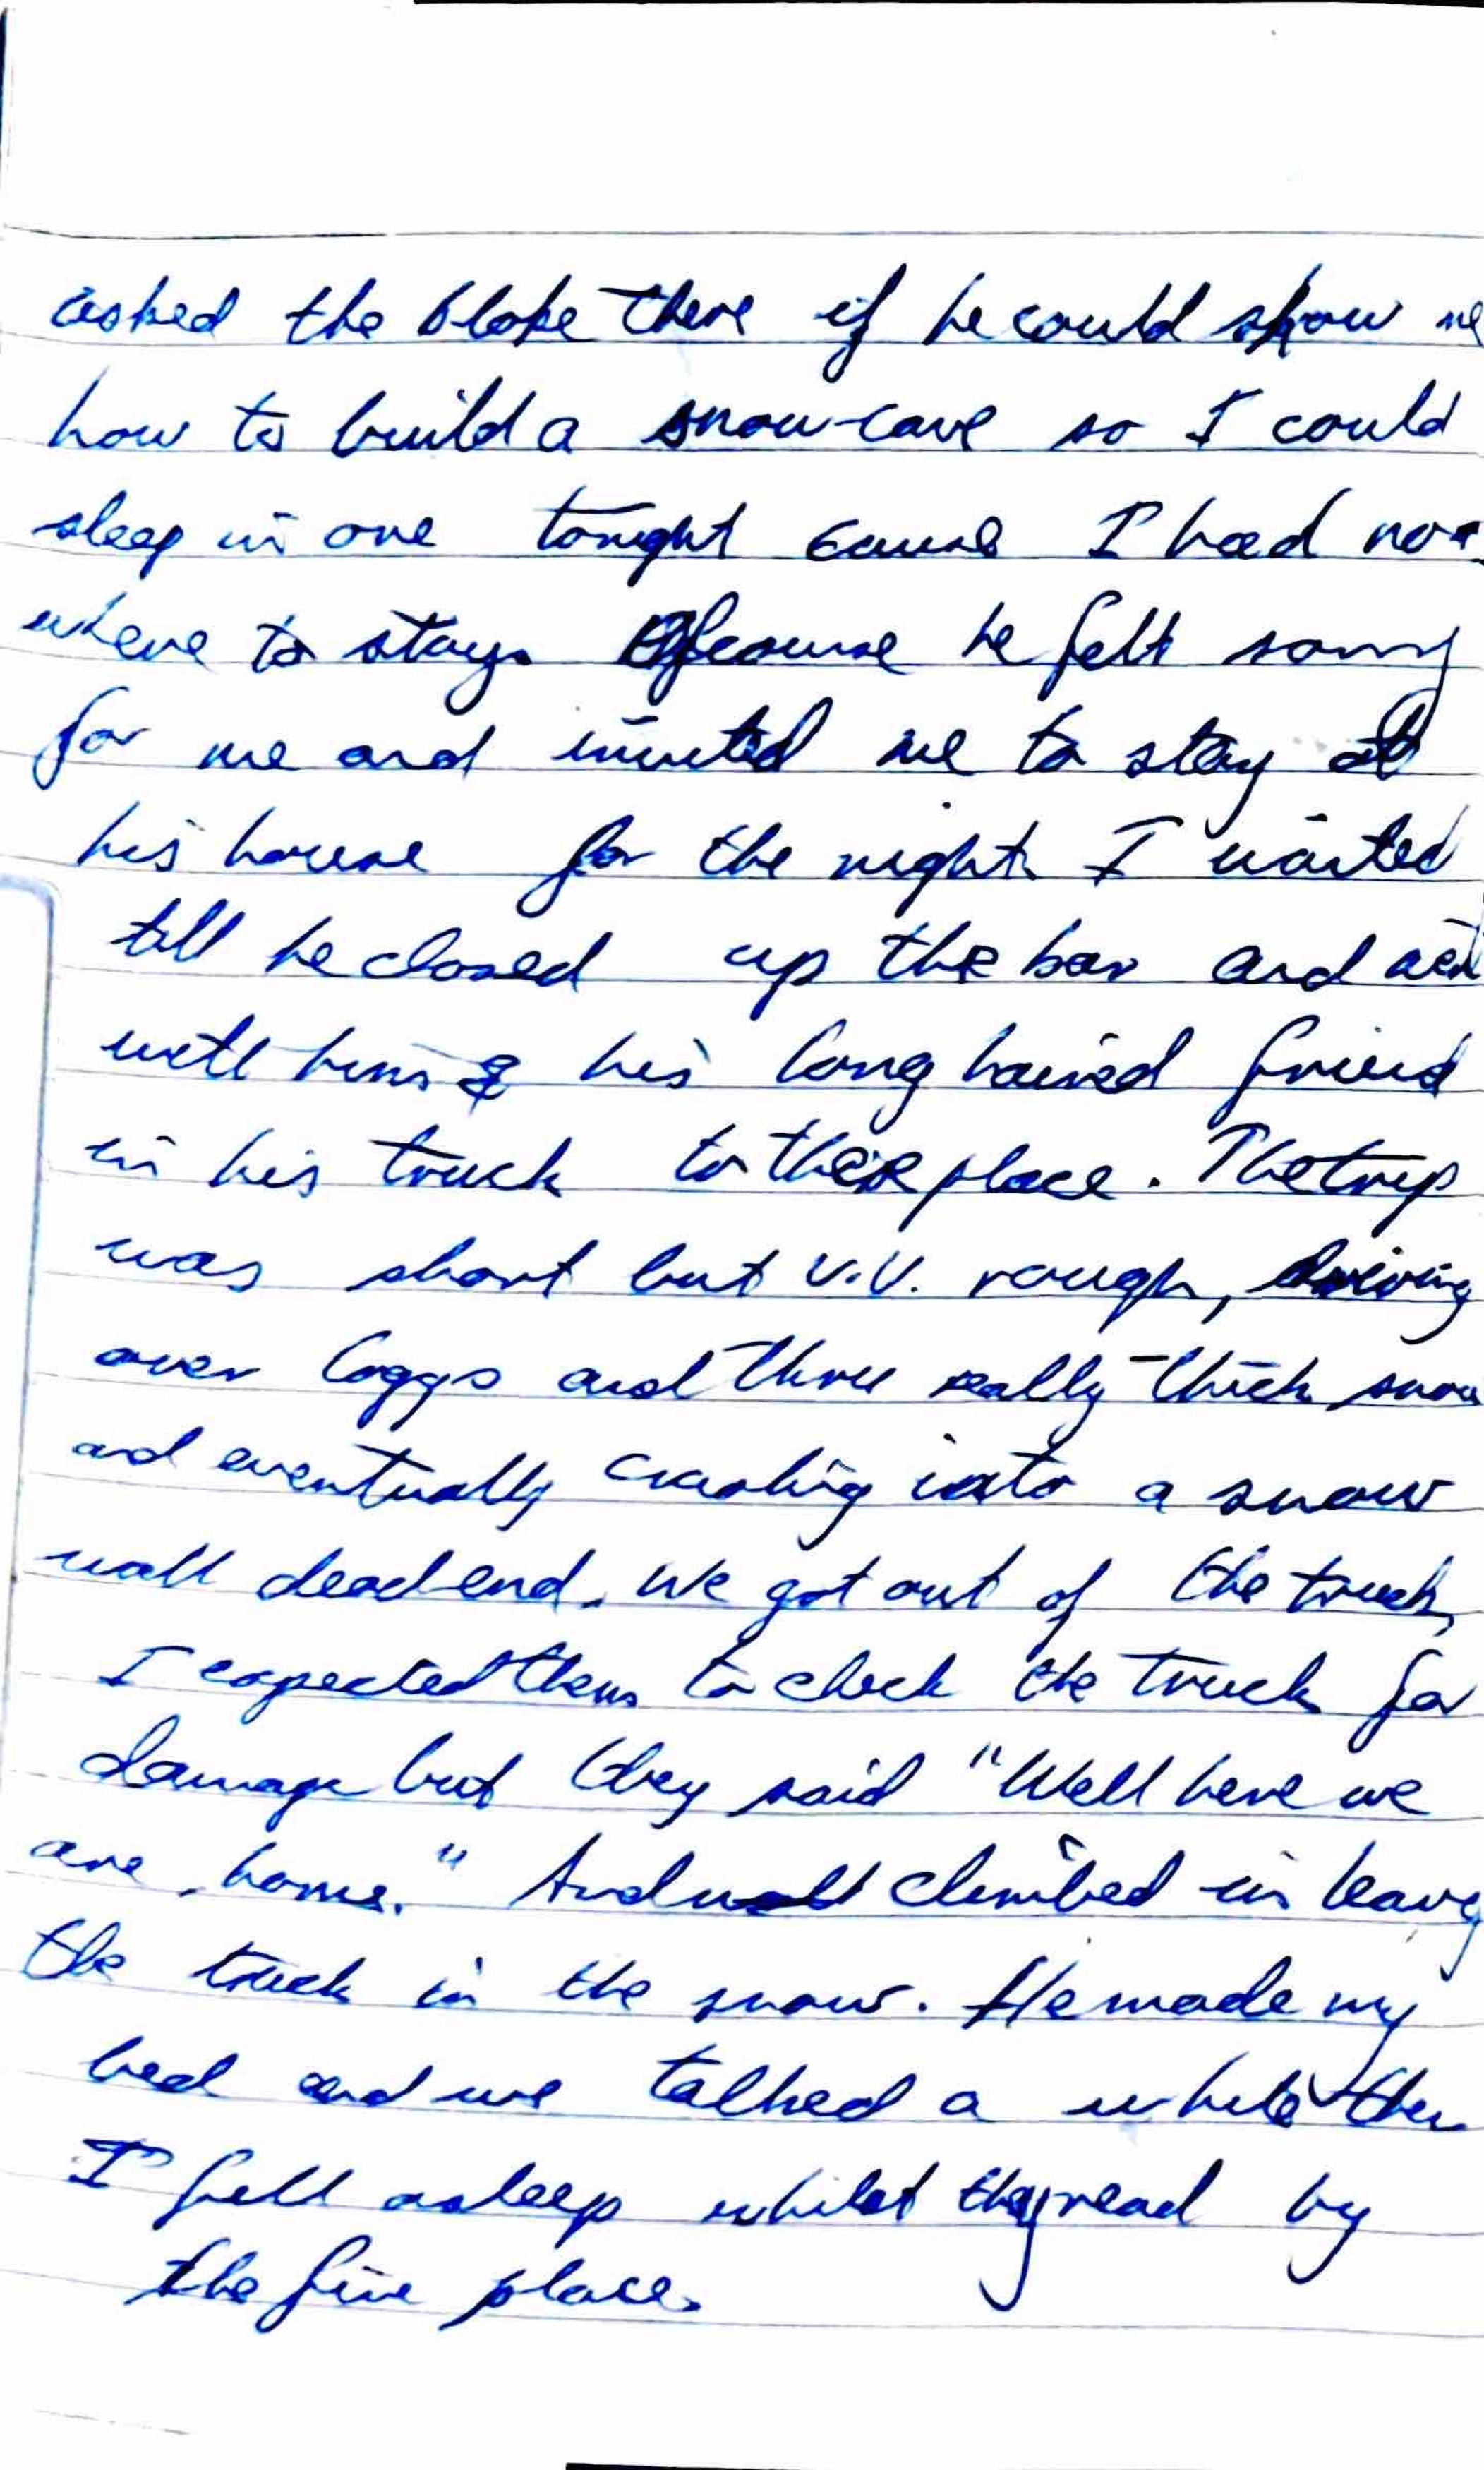 asked the bloke there if he could show me
how to build a snow-cave so I could
sleep in one tonight cause I had no
where to stay. Ofcourse he felt sorry
for me and invited me to stay at
his house for the night. I waited
till he closed up the bar and
with him & his long haired friend
in his truck to their place. The trip
was short but v.v. rough, driving
over loggs and thru really thick snow
and eventually crashing into a snow
wall dead end. We got out of the truck,
I expected them to check the truck for
damage but they said "Well here we
are, home." And climbed in leavg
the truck in the snow. He made my
bed and we talked a while then
I fell asleep whilst they read by
the fire place.